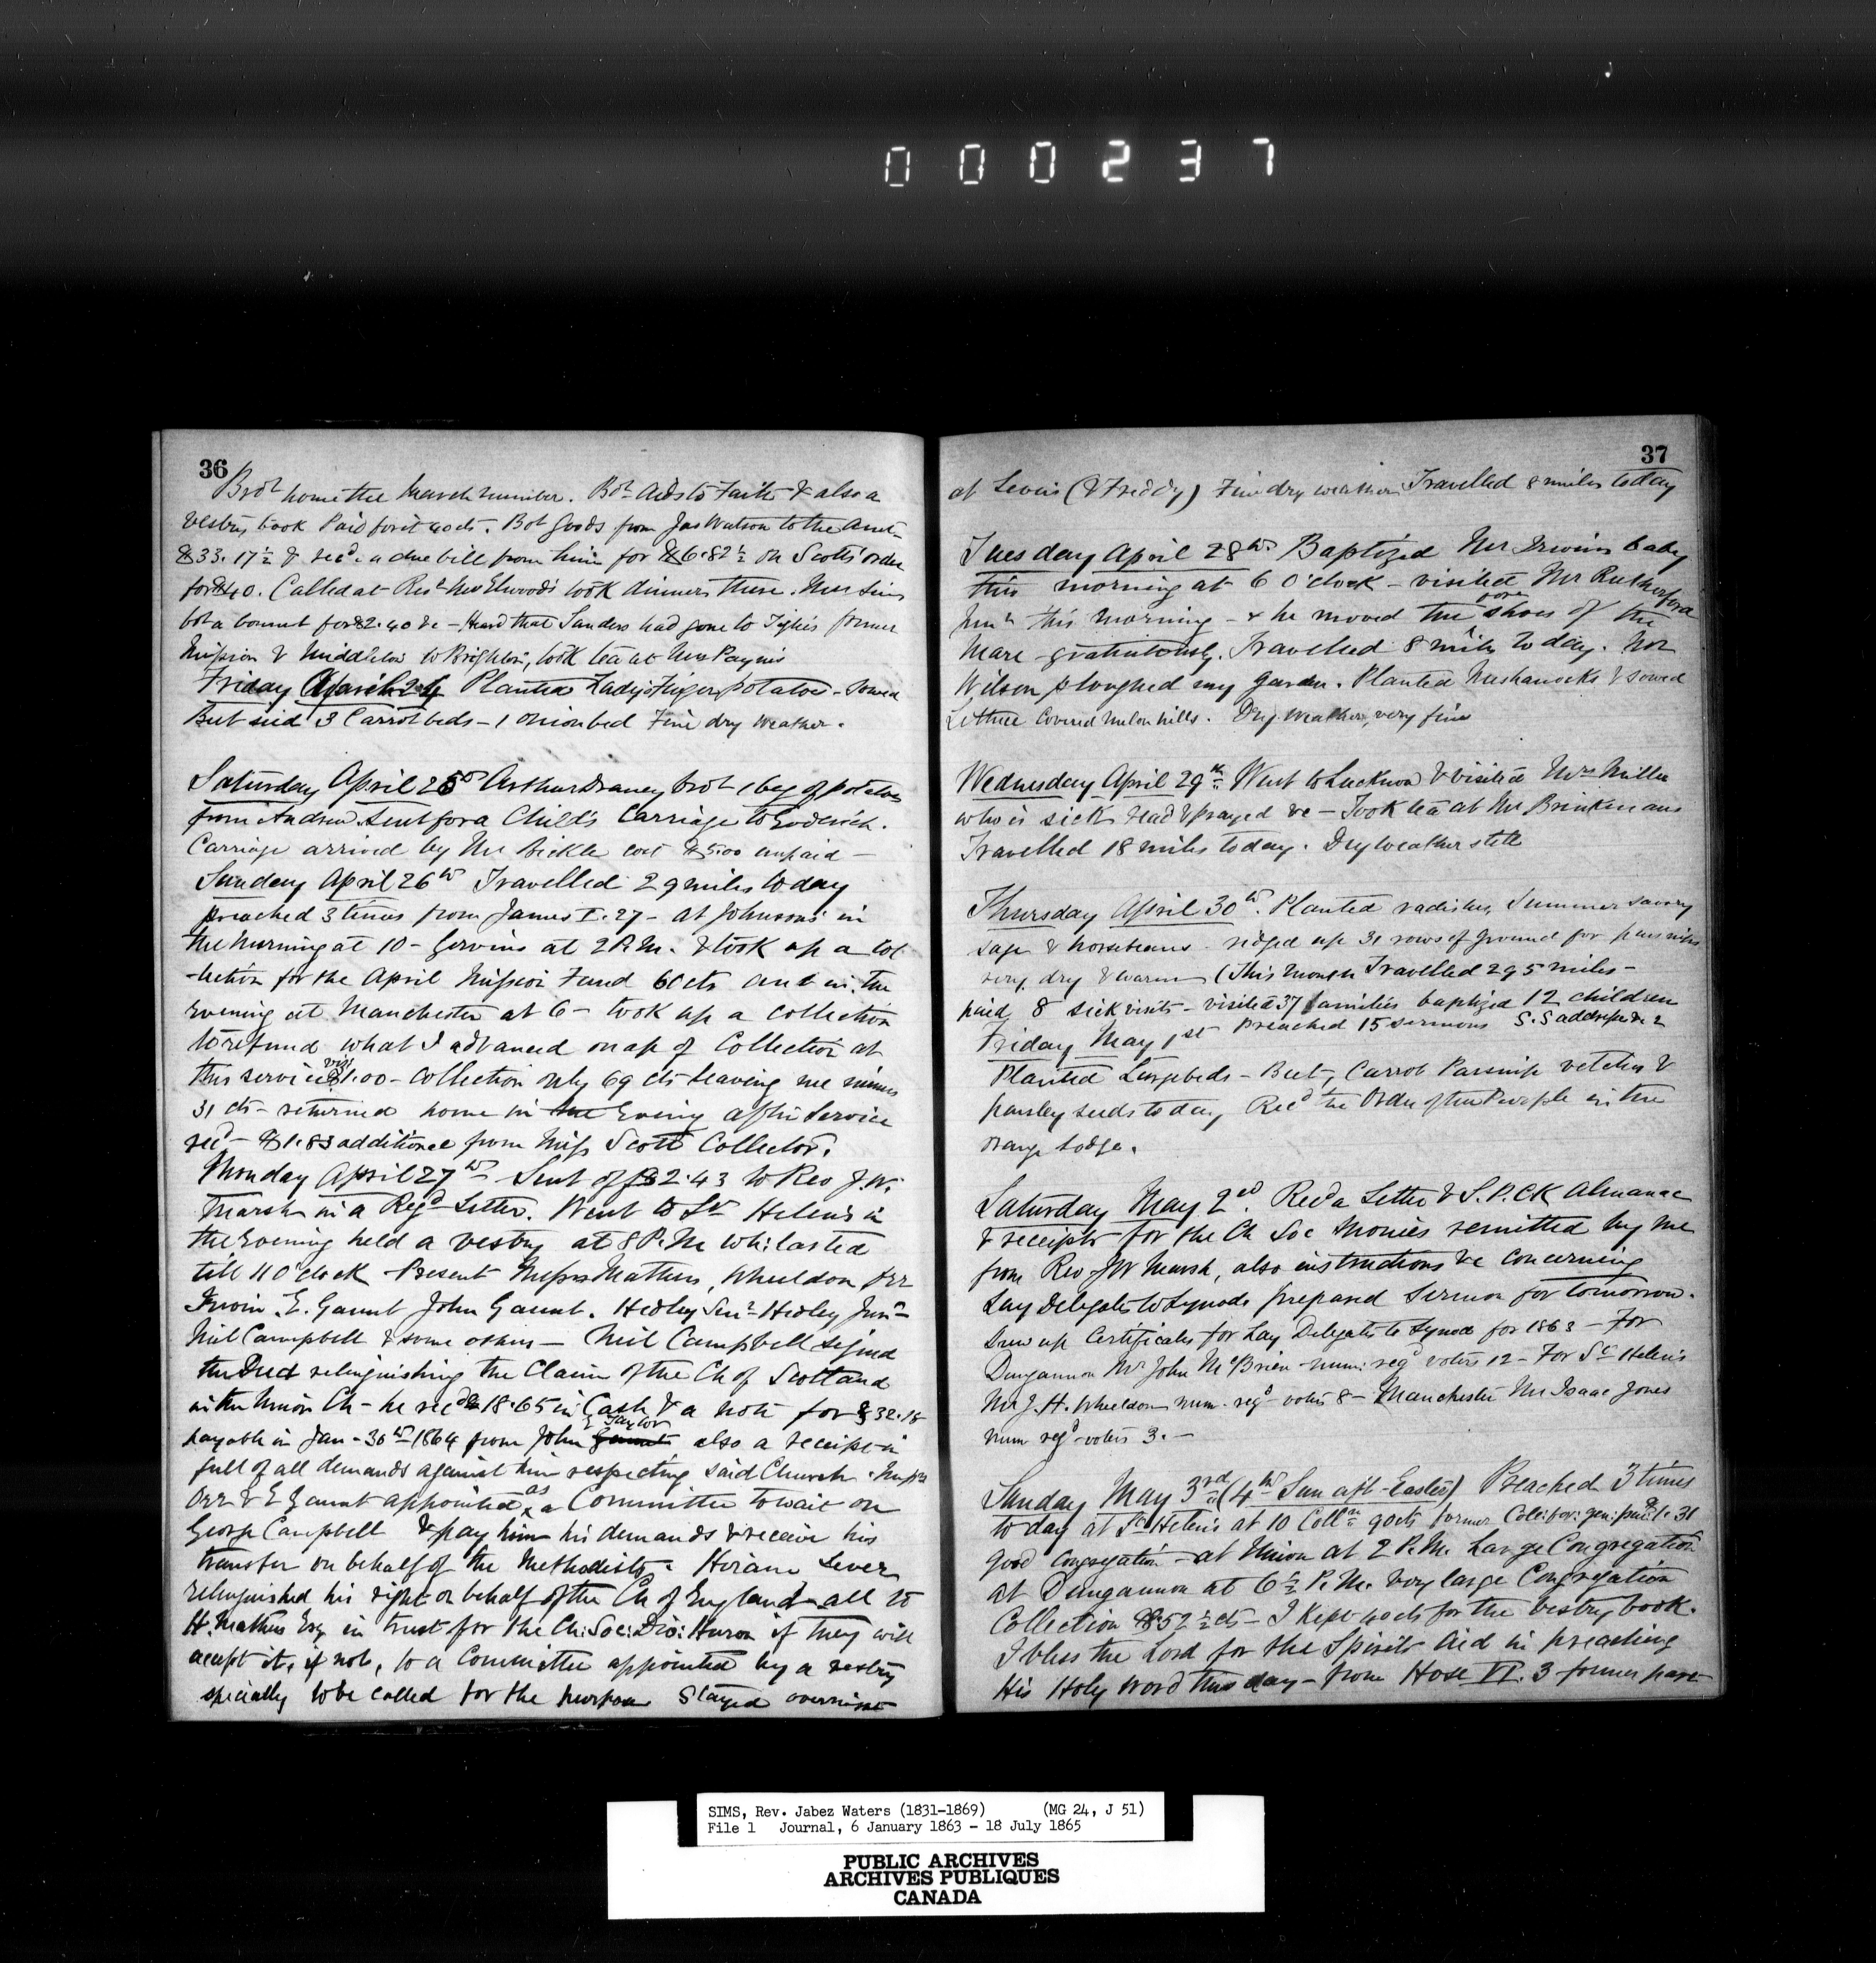 000237
36
Brot home the March number. Bot Aids to Faith & also a
Vestry book Paid for it 40 cts. Bot Goods from Jas Watson to the Amt
$33.17½ & recd. a due bill from him for $6.82½ on Scotts order
for $40. Called at Revd Mr Elwoods took dinner there. Mrs Sims
bot a bonnet for $2.40 &c - Heard that Sanders had gone to former
Mission & Middleton to Brighton, took tea at Mrs Paynes
Friday April 24 Planted Ladys Finger potatoes - Sowed
Beet seed 3 Carrot beds - 1 onion bed Fine dry Weather.
Saturday April 25th Arthur brot 1 bag of potatoes
from Andrew. Sent for a Child's Carriage to Goderich.
Carriage arrived by Mr Bickle cost $5.00 unpaid -
Sunday April 26th Travelled 29 miles today
preached 3 times from James I. 27 - at Johnsons in
the Morning at 10 - at 2 P.M. & took up a Col
-lection for the April Mission Fund 60 cts and in the
evening at Manchester at 6 - took up a collection
to refund what I advanced on a/c of Collection at
this service viz: $1.00 - collection only 69 cts leaving me minus
31 cts - returned home in the Evening after Service
recd - $1.83 additional from Miss Scott Collector.
Monday April 27th Sent off $2.43 to Rev J.W.
Marsh in a Regd Letter. Went to St Helens in
the Evening held a vestry at 8 P.M. whi: lasted
till 11 O'clock - Present Messrs Mathers, Wheeldon Orr
Irwin. E. Gaunt John Gaunt. Hedley Senr Hedley Junr
Neil Campbell & some others - Neil Campbell signed
the Deed relinquishing the Claim of the Ch of Scotland
in the Union Ch - he recd $18.65 in Cash & a note for $32.18
Taylor
payable in Jan - 30th 1864 from John Gaunt also a receipt in
full of all demands against him respecting said Church. Messrs
Orr & E Gaunt appointed as a Committee to wait on
George Campbell & pay him his demands & receive his
transfer on behalf of the Methodists. Hiram Lever
relinquished his right on behalf of the Ch of England - all to
H. Mathers Esq in trust for the Ch: Soc: Dio: Huron if they will
accept it, if not, to a Committee appointed by a vestry
specially to be called for the purpose Stayed overnight
37
at Levers (& Freddy) Fine dry weather Travelled 8 miles today
Tuesday April 28th Baptized Mr Irwins baby
this morning at 6 O'clock - visited Mr Rutherford
Junr this morning - & he moved the fore shoes of the
Mare gratuitously. Travelled 8 miles today. Mr
Wilson ploughed my Garden. Planted Meshanocks & sowed
Lettuce Covered melon hills. Dry Weather, very fine
Wednesday April 29th Went to Lucknow & visited Mrs Miller
who is sick read & prayed &c - Took tea at Mr Brinkmans
Travelled 18 miles today. Dry weather still
Thursday April 30th. Planted radishes, Summer savory
sage & horsebeans - ridged up 31 rows of ground for parsnips
very dry & warm (This month Travelled 295 miles -
paid 8 sick visits - visited 37 families baptized 12 children
Preached 15 sermons S.S addresses 2
Friday May 1st
Planted Large beds - Beet, Carrot Parsnip vetches &
parsley seeds today Recd the Order of the Purple in the
Orange Lodge.
Saturday May 2nd. Recd a Letter & S.P.C.K Almanac
& receipts for the Ch Soc Monies remitted by me
from Rev JW Marsh, also instructions &c concerning
Lay Delegates to Synod. prepared Sermon for tomorrow.
Drew up Certificates for Lay Delegates to Synod for 1863 - For
Dungannon Mr John McBrien - num: regd voters 12 - For St Helens
Mr J. H. Wheeldon num. regd voters 8 - Manchester Mr Isaac Jones
num regd voters 3. -
Sunday May 3rd (4th Sun aft - Easter) Preached 3 times
today at St Helens at 10 Colln 90 cts former Coll: for: gen: pur: $1.31
good congregation - at Union at 2 P.M. Large Congregation
at Dungannon at 6½ P.M. very large Congregation
Collection $52½ cts - I kept 40 cts for the vestry book.
I bless the Lord for the Spirits Aid in preaching
His Holy Word this day - from Hose VI. 3 former part
SIMS, Rev. Jabez Waters (1831-1869) (MG 24, J 51)
File 1 Journal, 6 January 1863 - 18 July 1865
PUBLIC ARCHIVES
ARCHIVES PUBLIQUES
CANADA